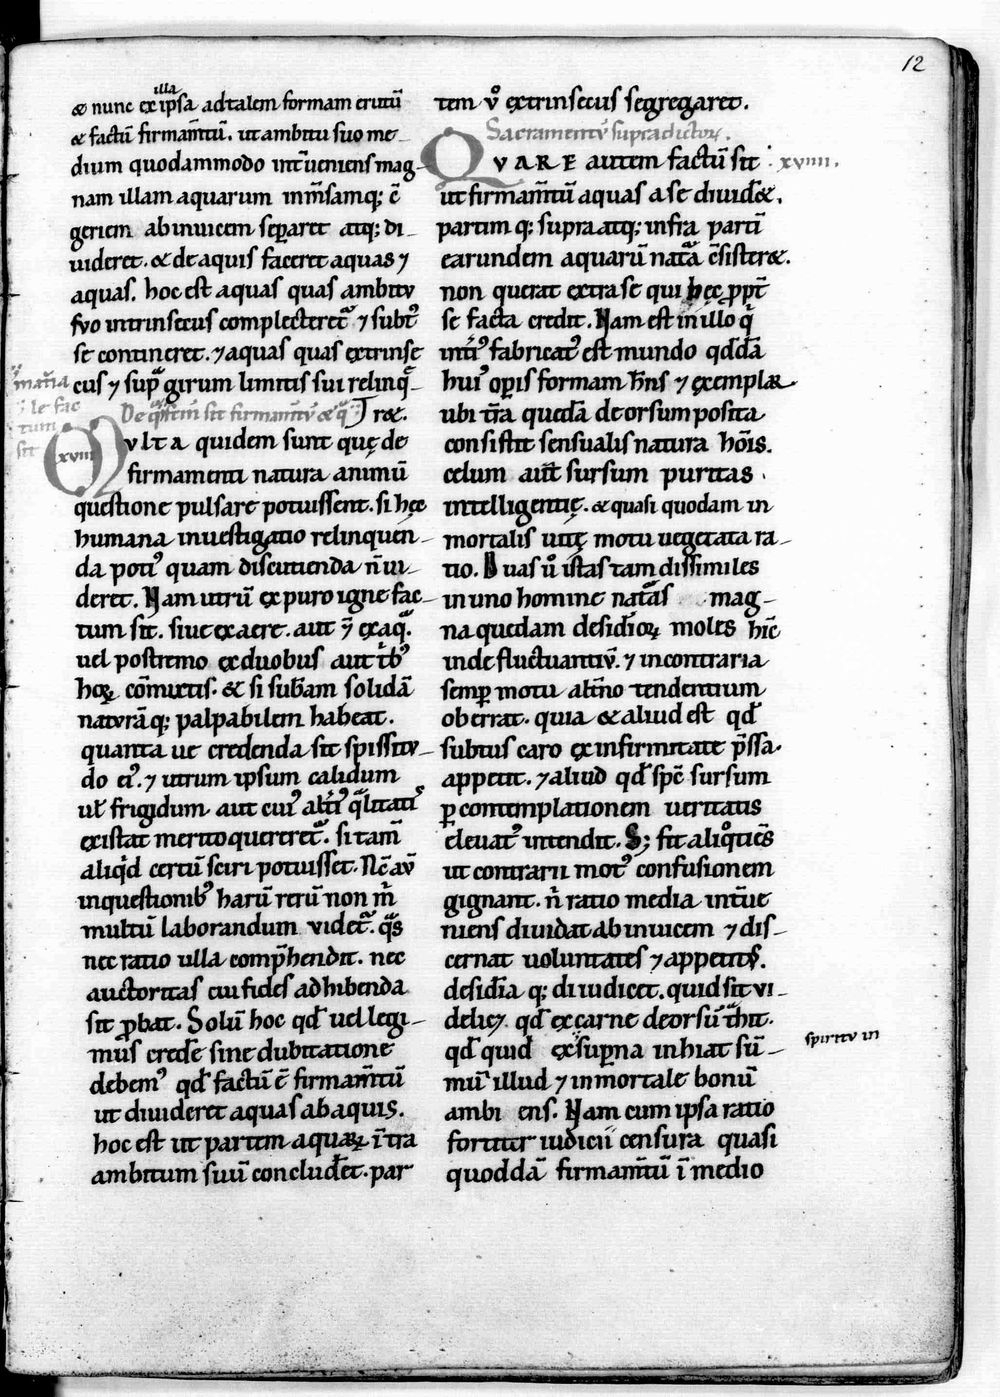 12
illa
& nunc ex ipsa ad talem formam erutū
& factū firmam̄tū. ut ambitu suo me-
dium quodammodo int̄ueniens mag-
nam illam aquarum imm̄samq; c̄
geriem ab inuicem separet atq; di-
uideret. & de aquis faceret aquas ⁊
aquas. hoc est aquas quas ambitu
suo intrinsecus complecteret᷑ ⁊ subt᷑
se contineret. ⁊ aquas quas extrinse
cus ⁊ sup̄ girum limitis sui relinq̄-
ret.
De
sit firmam̄tū &
mat̄ia
le fac
tum
sit
xviii
Mvlta quidem sunt quę de
firmamenti natura animū
questione pulsare potuissent. si hęc
humana inuestigatio relinquen-
da poti᷒ quam discutienda n̄ ui-
deret. Nam utrū ex puro igne fac-
tum sit. siue ex aere. aut
uel postremo ex duobus aut
hoꝝ cōmixtis. & si subām solidā
naturāq; palpabilem habeat.
quanta ue credenda sit spissitu-
do ei᷒. ⁊ utrum ipsum calidum
ul̄ frigidum. aut cui᷒ alt̄i᷒ q̄litati᷒
existat merito quereret᷑. si tam̄
aliqͥd certū sciri potuisset. Nc̄ aū
in questionib᷒ harū rerū non m̄
multū laborandum videt᷑. q̄s
nec ratio ulla comp̄hendit. nec
auctoritas cui fides adhibenda
sit ꝓbat. Solū hoc qd̄ uel legi-
mus cred̄e sine dubitatione
debem᷒ qd̄ factū ē firmam̄tū
ut diuideret aquas ab aquis.
hoc est ut partem aquaꝝ īt̄ra
ambitum suū concluder̄et. par
tem v̊ extrinsecus segregaret.
Sacramentū supradictoꝝ.
xviiii.
QVARE autem factū sit
ut firmam̄tū aquas a se diuid̄&.
partim q; supra atq; infra parti
earundem aquarū natā c̄sister&.
non querat extra se qui hęc ꝓpt̄
se facta credit. Nam est in illo q̄
int̄i᷒ fabricat᷒ est mundo qd̄dā
hui᷒ oꝑis formam h̄ns ⁊ exemplar.
ubi t̄ra quedā deorsum posita
consistit sensualis natura hōis.
celum aut̄ sursum puritas
intelligentię. & quasi quodam in
mortalis uitę motu uegetata ra-
tio. Duas ū istas tam dissimiles
in uno homine natās mag-
na quedam desid̄ioꝝ moles hīc
inde fluctuantiū. ⁊ in contraria
semꝑ motu alt̄no tendentium
oberrat. quia & aliud est qd̄
subtus caro ex infirmitate p̄ssa.
appetit. ⁊ aliud qd̄ spc̄ sursum
ꝑ contemplationem ueritatis
eleuat᷒ intendit. S; fit aliqͦtiēs
ut contrarii mot᷒ confusionem
gignant. n̄ ratio media int̄ue
niens diuidat ab inuicem ⁊ dis-
cernat uoluntates ⁊ appetit᷒.
desid̄ia q; diiudicet. quid sit vi-
delicꝫ qd̄ ex carne deorsū t̄hit.
qd̄ quid ex sup̄na inhiat sū-
spiritu in
mū illud ⁊ inmortale bonū
ambiens. Nam cum ipsa ratio
fortitur iudicii censura quasi
quoddā firmam̄tū ī medio